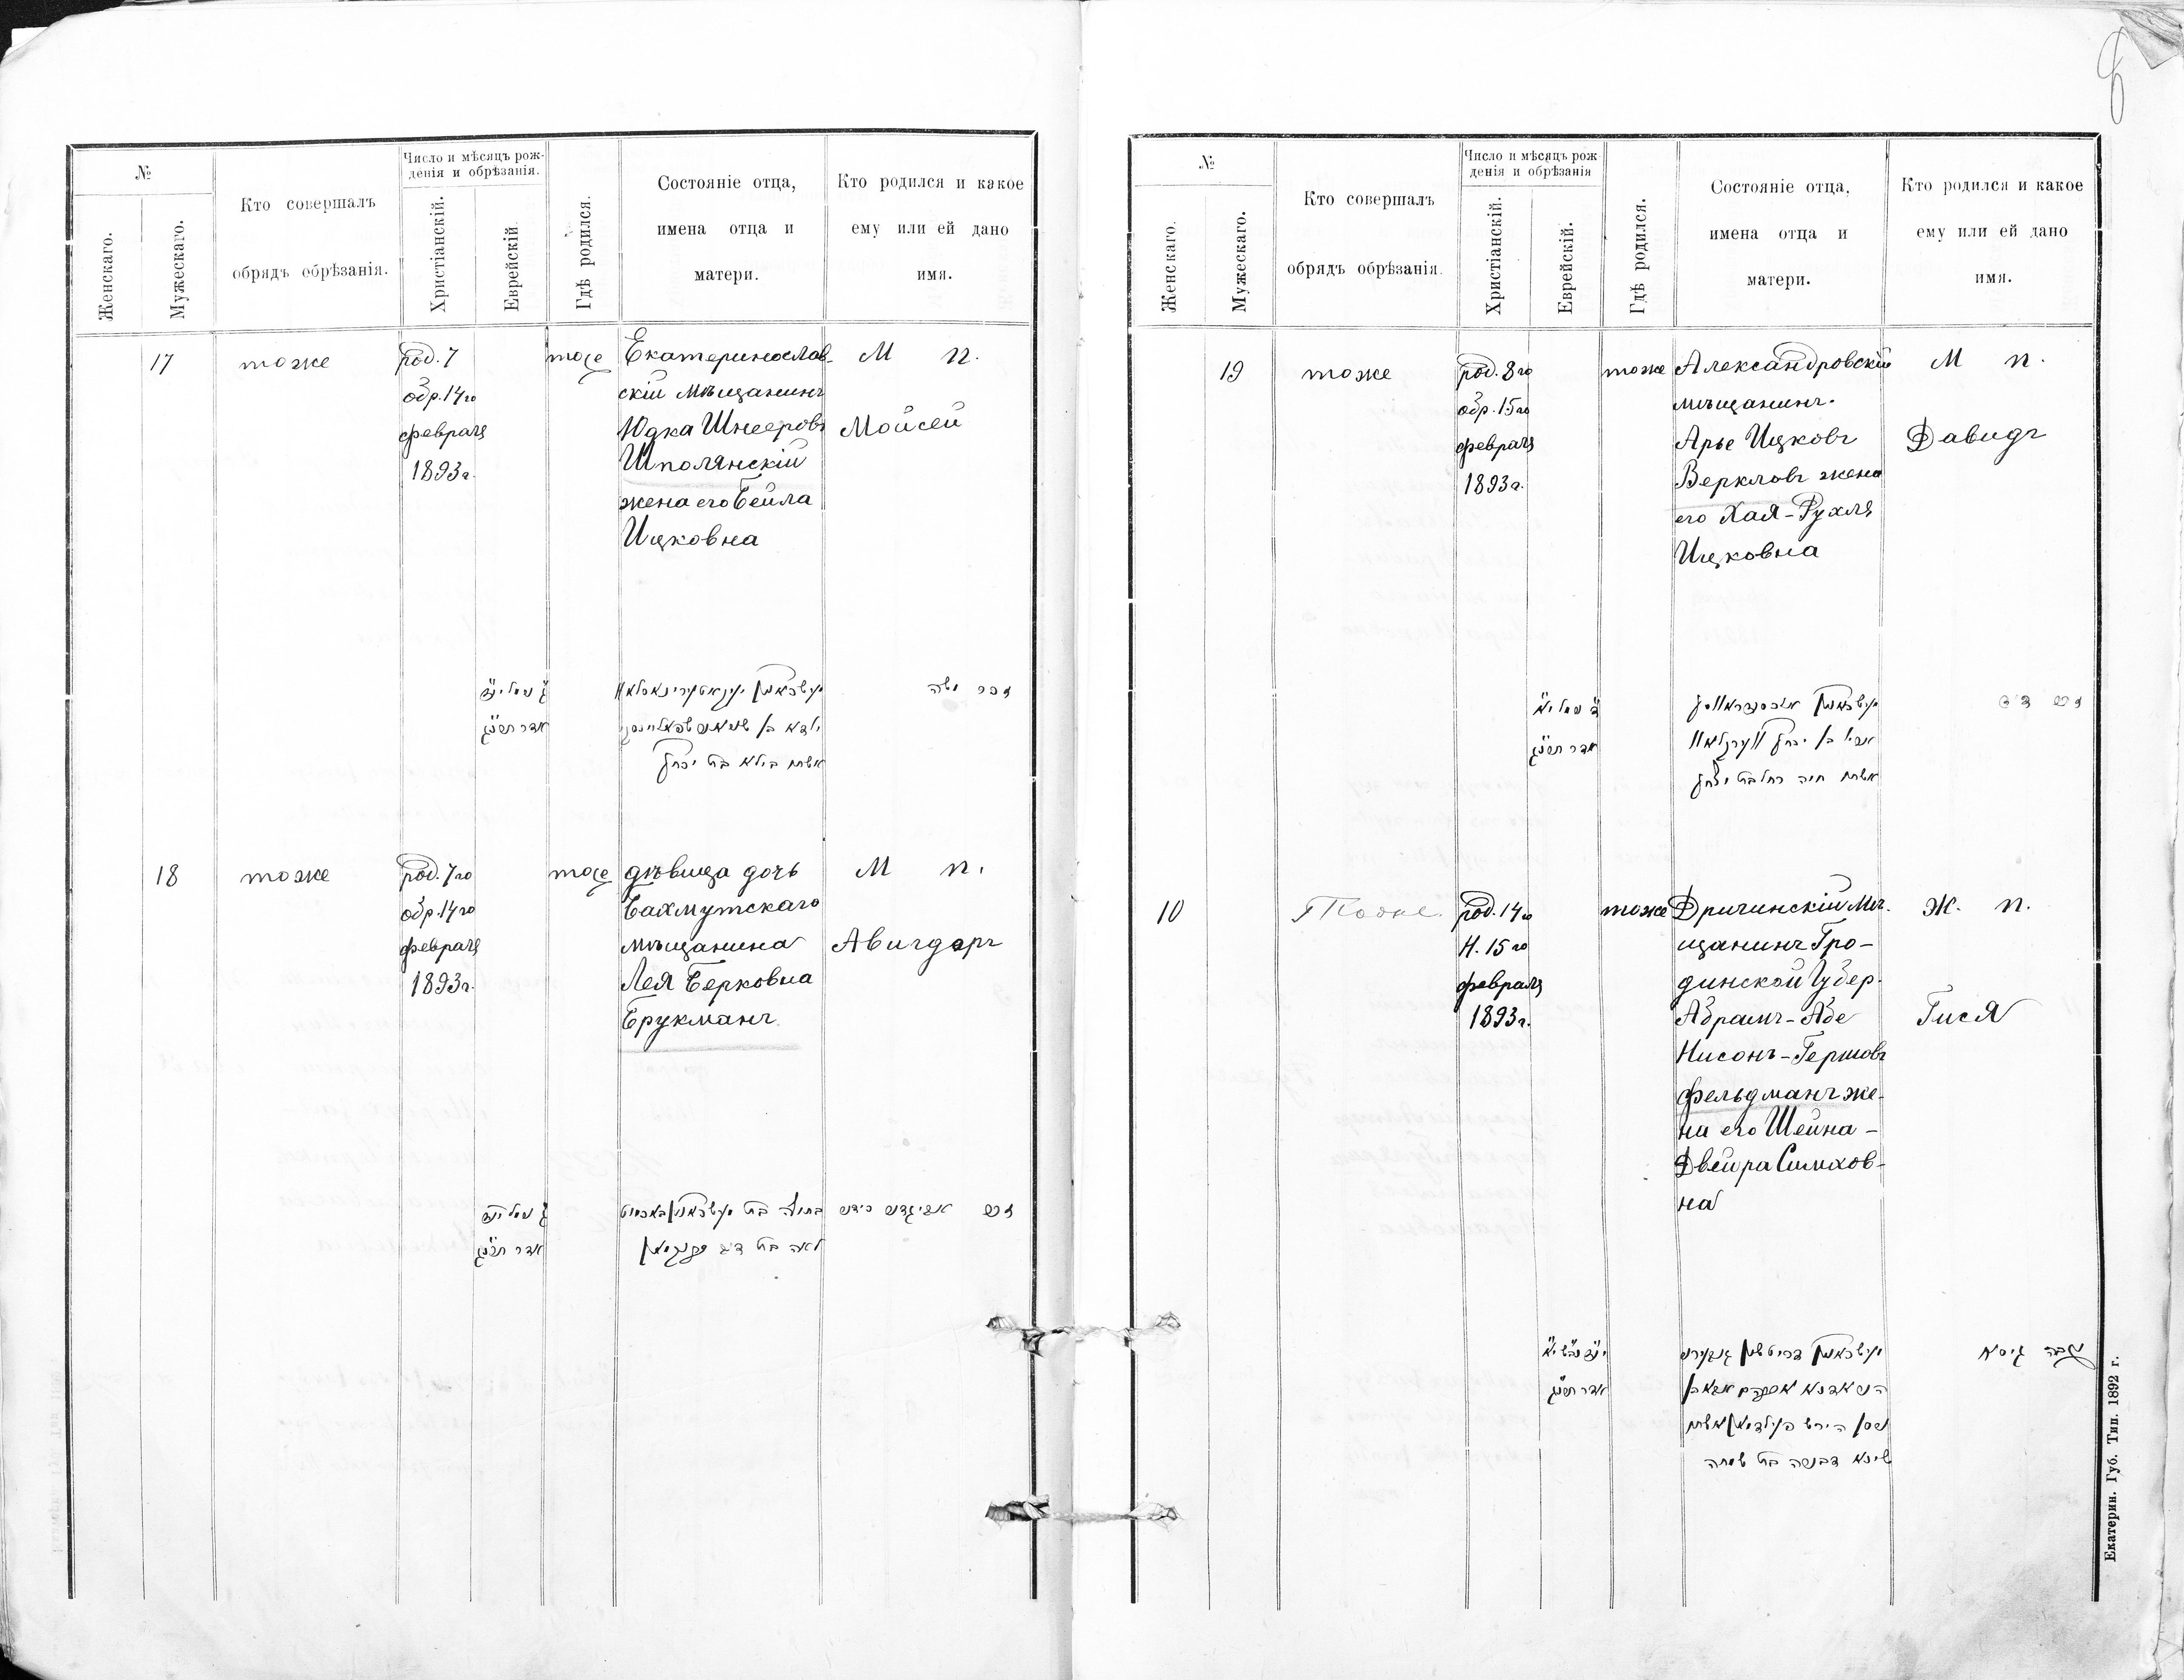 8
№
Женскаго.
Мужескаго.
Кто совершалъ
обрядъ обрѣзанія.
Число и мѣсяцъ рож-
денія и обрѣзанія.
Христіанскій.
Еврейскій
Гдѣ родился.
Состояніе отца,
имена отца и
матери.
Кто родился и какое
ему или ей дано
имя.
17
тоже
род. 7
обр. 14го
февраля
1893г.
тоже
Екатеринослав-
скій мѣщанинъ
Юдка Шнееровъ
Шполянскій
жена его Бейла
Ицковна
М п.
Мойсей
אדר תרנ״ג
אשתו ביילא בת יצחק
זכר משה
18
тоже
род. 7го
обр. 14го
февраля
1893г.
тоже
дѣвица дочь
Бахмутскаго
мѣщанина
Лея Берковна
Брукманъ
М п.
Авигдоръ
אדר תרנ״ג
לאה בת
№
Женскаго.
Мужескаго.
Кто совершалъ
обрядъ обрѣзанія.
Число и мѣсяцъ рож-
денія и обрѣзанія
Христіанскій.
Еврейскій.
Гдѣ родился.
Состояніе отца,
имена отца и
матери.
Кто родился и какое
ему или ей дано
имя.
19
тоже
род. 8го
обр. 15го
февраля
1893г.
тоже
Александровскій
мѣщанинъ
Арье Ицковъ
Веркловъ жена
его Хая-Рухля
Ицковна
М п.
Давидъ
אדר תרנ״ג
אשתו חיה רחל בת יצחק
10
тоже
род. 14го
Н. 15го
февраля
1893г.
тоже
Дричинскій мѣ-
щанинъ Гро-
динской Губер.
Абрамъ-Абе
Нисонъ-Гершовъ
Фельдманъ же-
на его Шейна-
Двейра Симхов-
на
Ж. п.
Гися
אדר תרנ״ג
נקבה גיסא
שיינא דבורה בת שמחה
Екатерин. Губ. Тип. 1892 г.